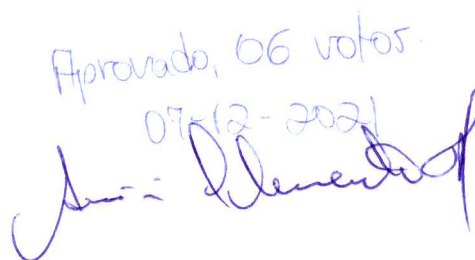 Aprovado, 06 votos.
07-12-2021